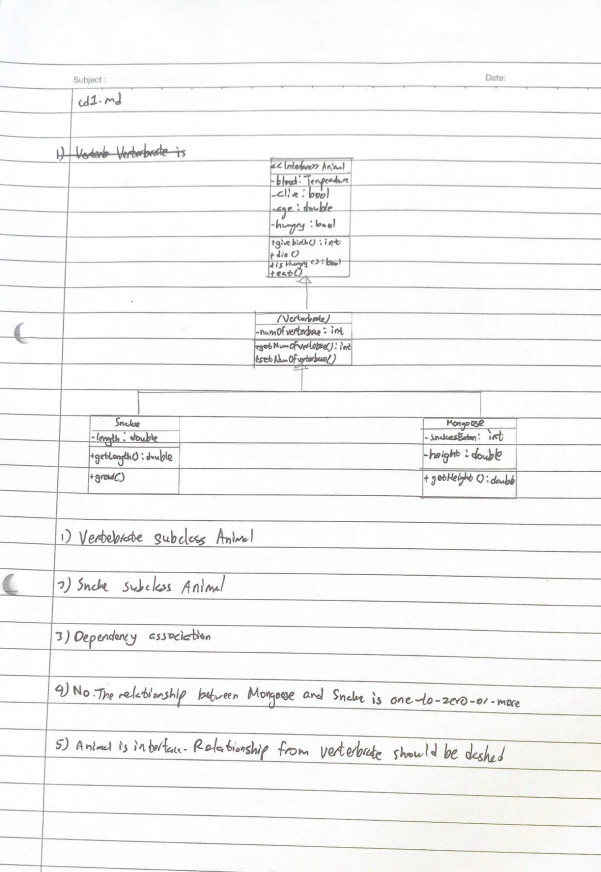 Subject :
Date:
cd1.md
1) Verterb Verterbrate is
<<Interface>> Animal
-blood: Temperature
-alive : bool
-age : double
-hungry : bool
+givebirth() : int
+ die ()
+isHungry () : bool
+eat()
/Verterbrate/
-numOfverterbrae : int
+getNumOfverterbrae() : int
+setNumOfverterbrae()
Snake
-length : double
+getLength() : double
+grow()
Mongoose
-SnakesEaten : int
-height : double
+ getHeight () : double
1) Vertebrate subclass Animal
2) Snake subclass Animal
3) Dependency association
4) No. The relationship between Mongoose and Snake is one-to-zero-or-more
5) Animal is interface. Relationship from verterbrate should be dashed